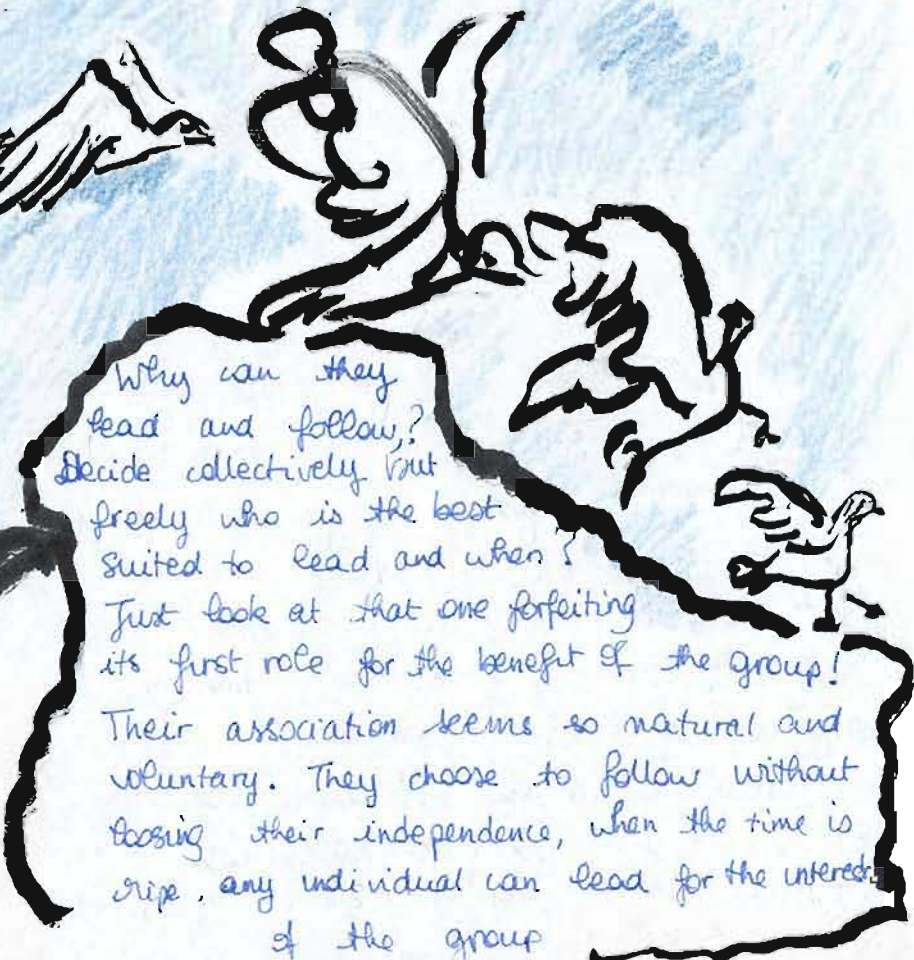 Why can they
lead and follow,?
Decide collectively but
freely who is the best
suited to lead and when?
Just look at that one forfeiting
its first role for the benefit of the group!
Their association seems so natural and
voluntary. They choose to follow without
loosing their independence, when the time is
ripe, any individual can lead for the interest
of the group